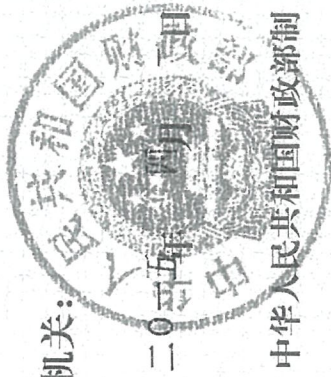 机关：
中华人民共和国财政部
二〇一五年 四月 一日
中华人民共和国财政部制